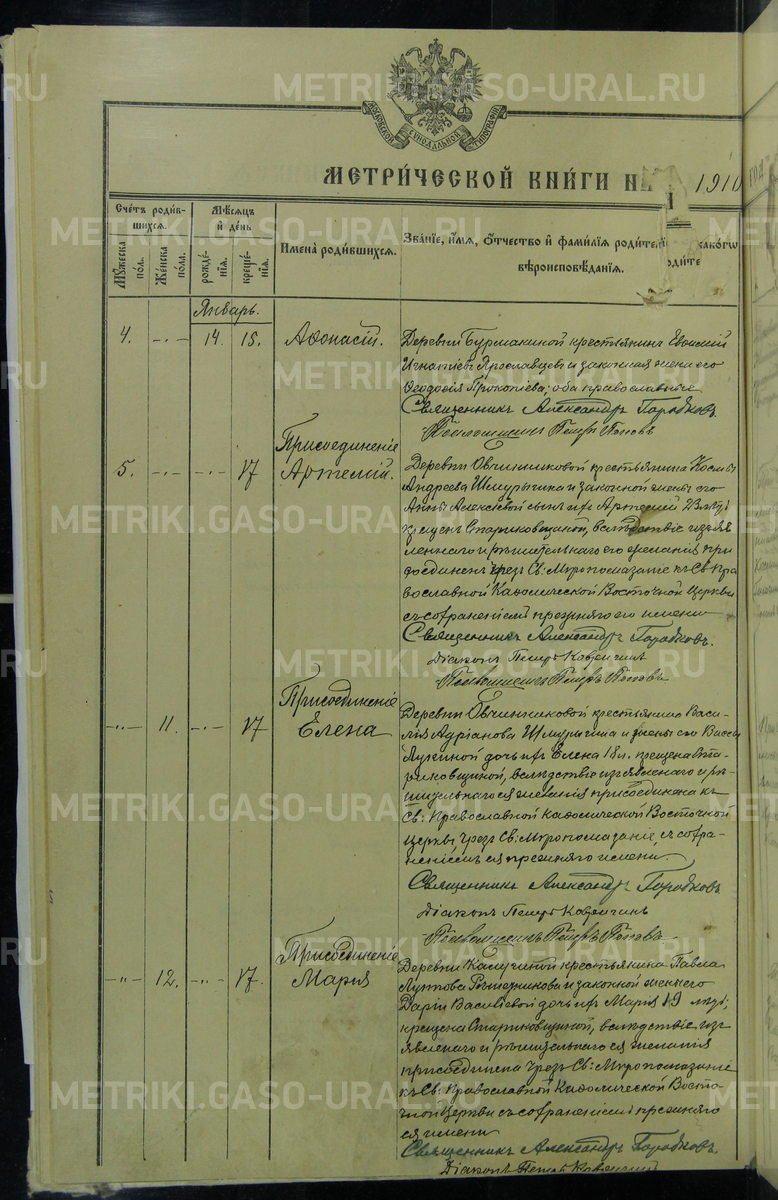 METRIKI.GASO-URAL.RU
МОСКОВСКОЙ СѴНОДАЛЬНОЙ ТИПОГРАФІИ
МЕТРИ́ЧЕСКОЙ КНИ́ГИ НА 1910
Счётъ роди́вшихся.
Мѣсяцъ и҆ де́нь
Мꙋжеска по́ла.
Же́нска по́ла.
рожде́нїя.
креще́нїя.
И҆мена̀ роди́вшихся.
Зва́нїе, и҆́мѧ, ѻ҆́тчество и҆ фами́лїѧ роди́телей
како́гѡ
вѣроисповѣ́данїѧ.
Январь.
4. -·- 14. 15. Аѳонасій.
Деревни Бурмакиной крестьянинъ Евѳимій
Игнатіевъ Ярославцевъ и законная жена его
Ѳеодосія Прокопіева; оба православные
Священникъ Александръ Городковъ.
Псаломщикъ Петръ Поповъ
5. -·- -·- 17 Присоединеніе
Артемій.
Деревни Овчинниковой крестьянина Космы
Андреева Шмурыгина и законной жены его
Анны Алексѣевой сынъ Артемій 23 лѣтъ
крещенъ Стариковщиной, вслѣдствіе изъяв
леннаго и рѣшительнаго его желанія при
соединенъ чрезъ Св: Мѵропомазаніе къ Св Пра
вославной Каѳолической Восточной Церкви
съ сохраненіемъ прежняго его имени
Священникъ Александръ Городковъ.
Діаконъ Петръ
Псаломщикъ Петръ Поповъ
-·- 11. -·- 17 Присоединеніе
Елена
Деревни Овчинниковой крестьянина Васи-
лія Адріанова Шмурыгина и жены его Вассы
Лукиной дочь Елена 18 л. крещена Ста-
риковщиной, вслѣдствіе изъявленнаго и рѣ-
шительнаго ея желанія присоединена къ
Св: Православной Каѳолической Восточной
Церкви, чрезъ Св: Мѵропомазаніе, съ сохра-
неніемъ ея прежняго имени.
Священникъ Александръ Городковъ
Діаконъ Петръ
Псаломщикъ Петръ Поповъ
-·- 12. -·- 17. Присоединеніе
Марія
Деревни крестьянина Павла
Рѣшетникова и законной жены его
Даріи Васильевой дочь Марія 19 лѣтъ;
крещена Стариковщиной, вслѣдствіе изъ
явленаго и рѣшительнаго ея желанія
присоединена чрезъ Св: Мѵропомазаніе
къ Св: Православной Каѳолической Восто-
чной Церкви съ сохраненіемъ прежняго
ея имени
Священникъ Александръ Городковъ.
Діаконъ Петръ